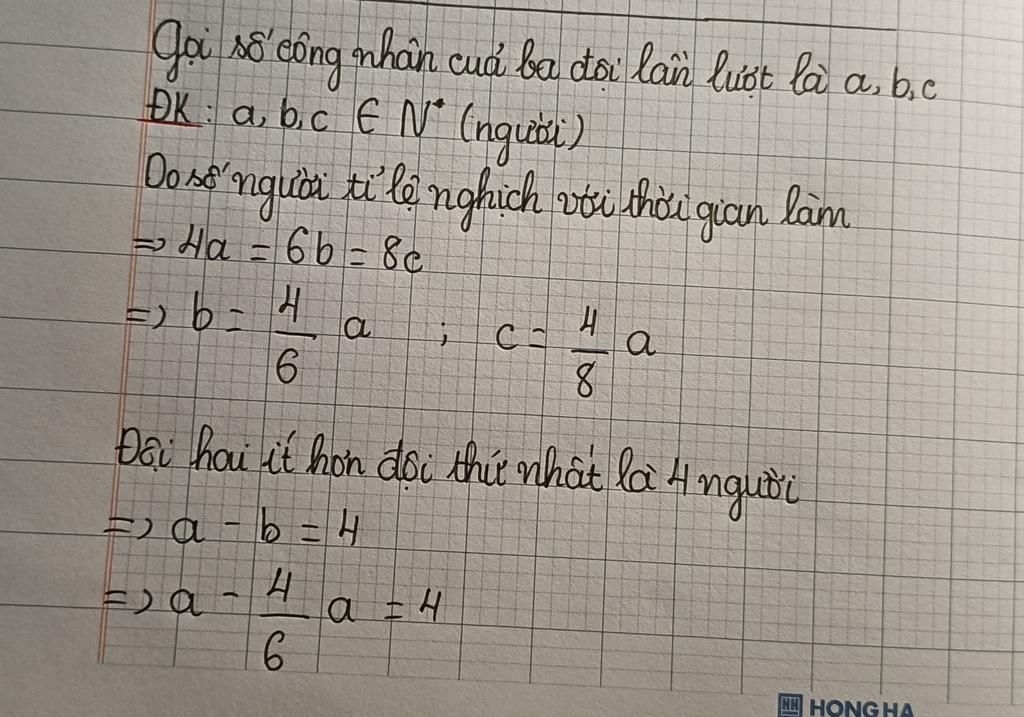 Gọi số công nhân cuả ba đội lần lượt là a, b, c
ĐK: a, b, c ∈ N* (người)
Do số người tỉ lệ nghịch với thời gian làm
=> 4a = 6b = 8c
=> b = 4/6 a ; c = 4/8 a
Đội hai ít hơn đội thứ nhất là 4 người
=> a - b = 4
=> a - 4/6 a = 4
HH HONG HA